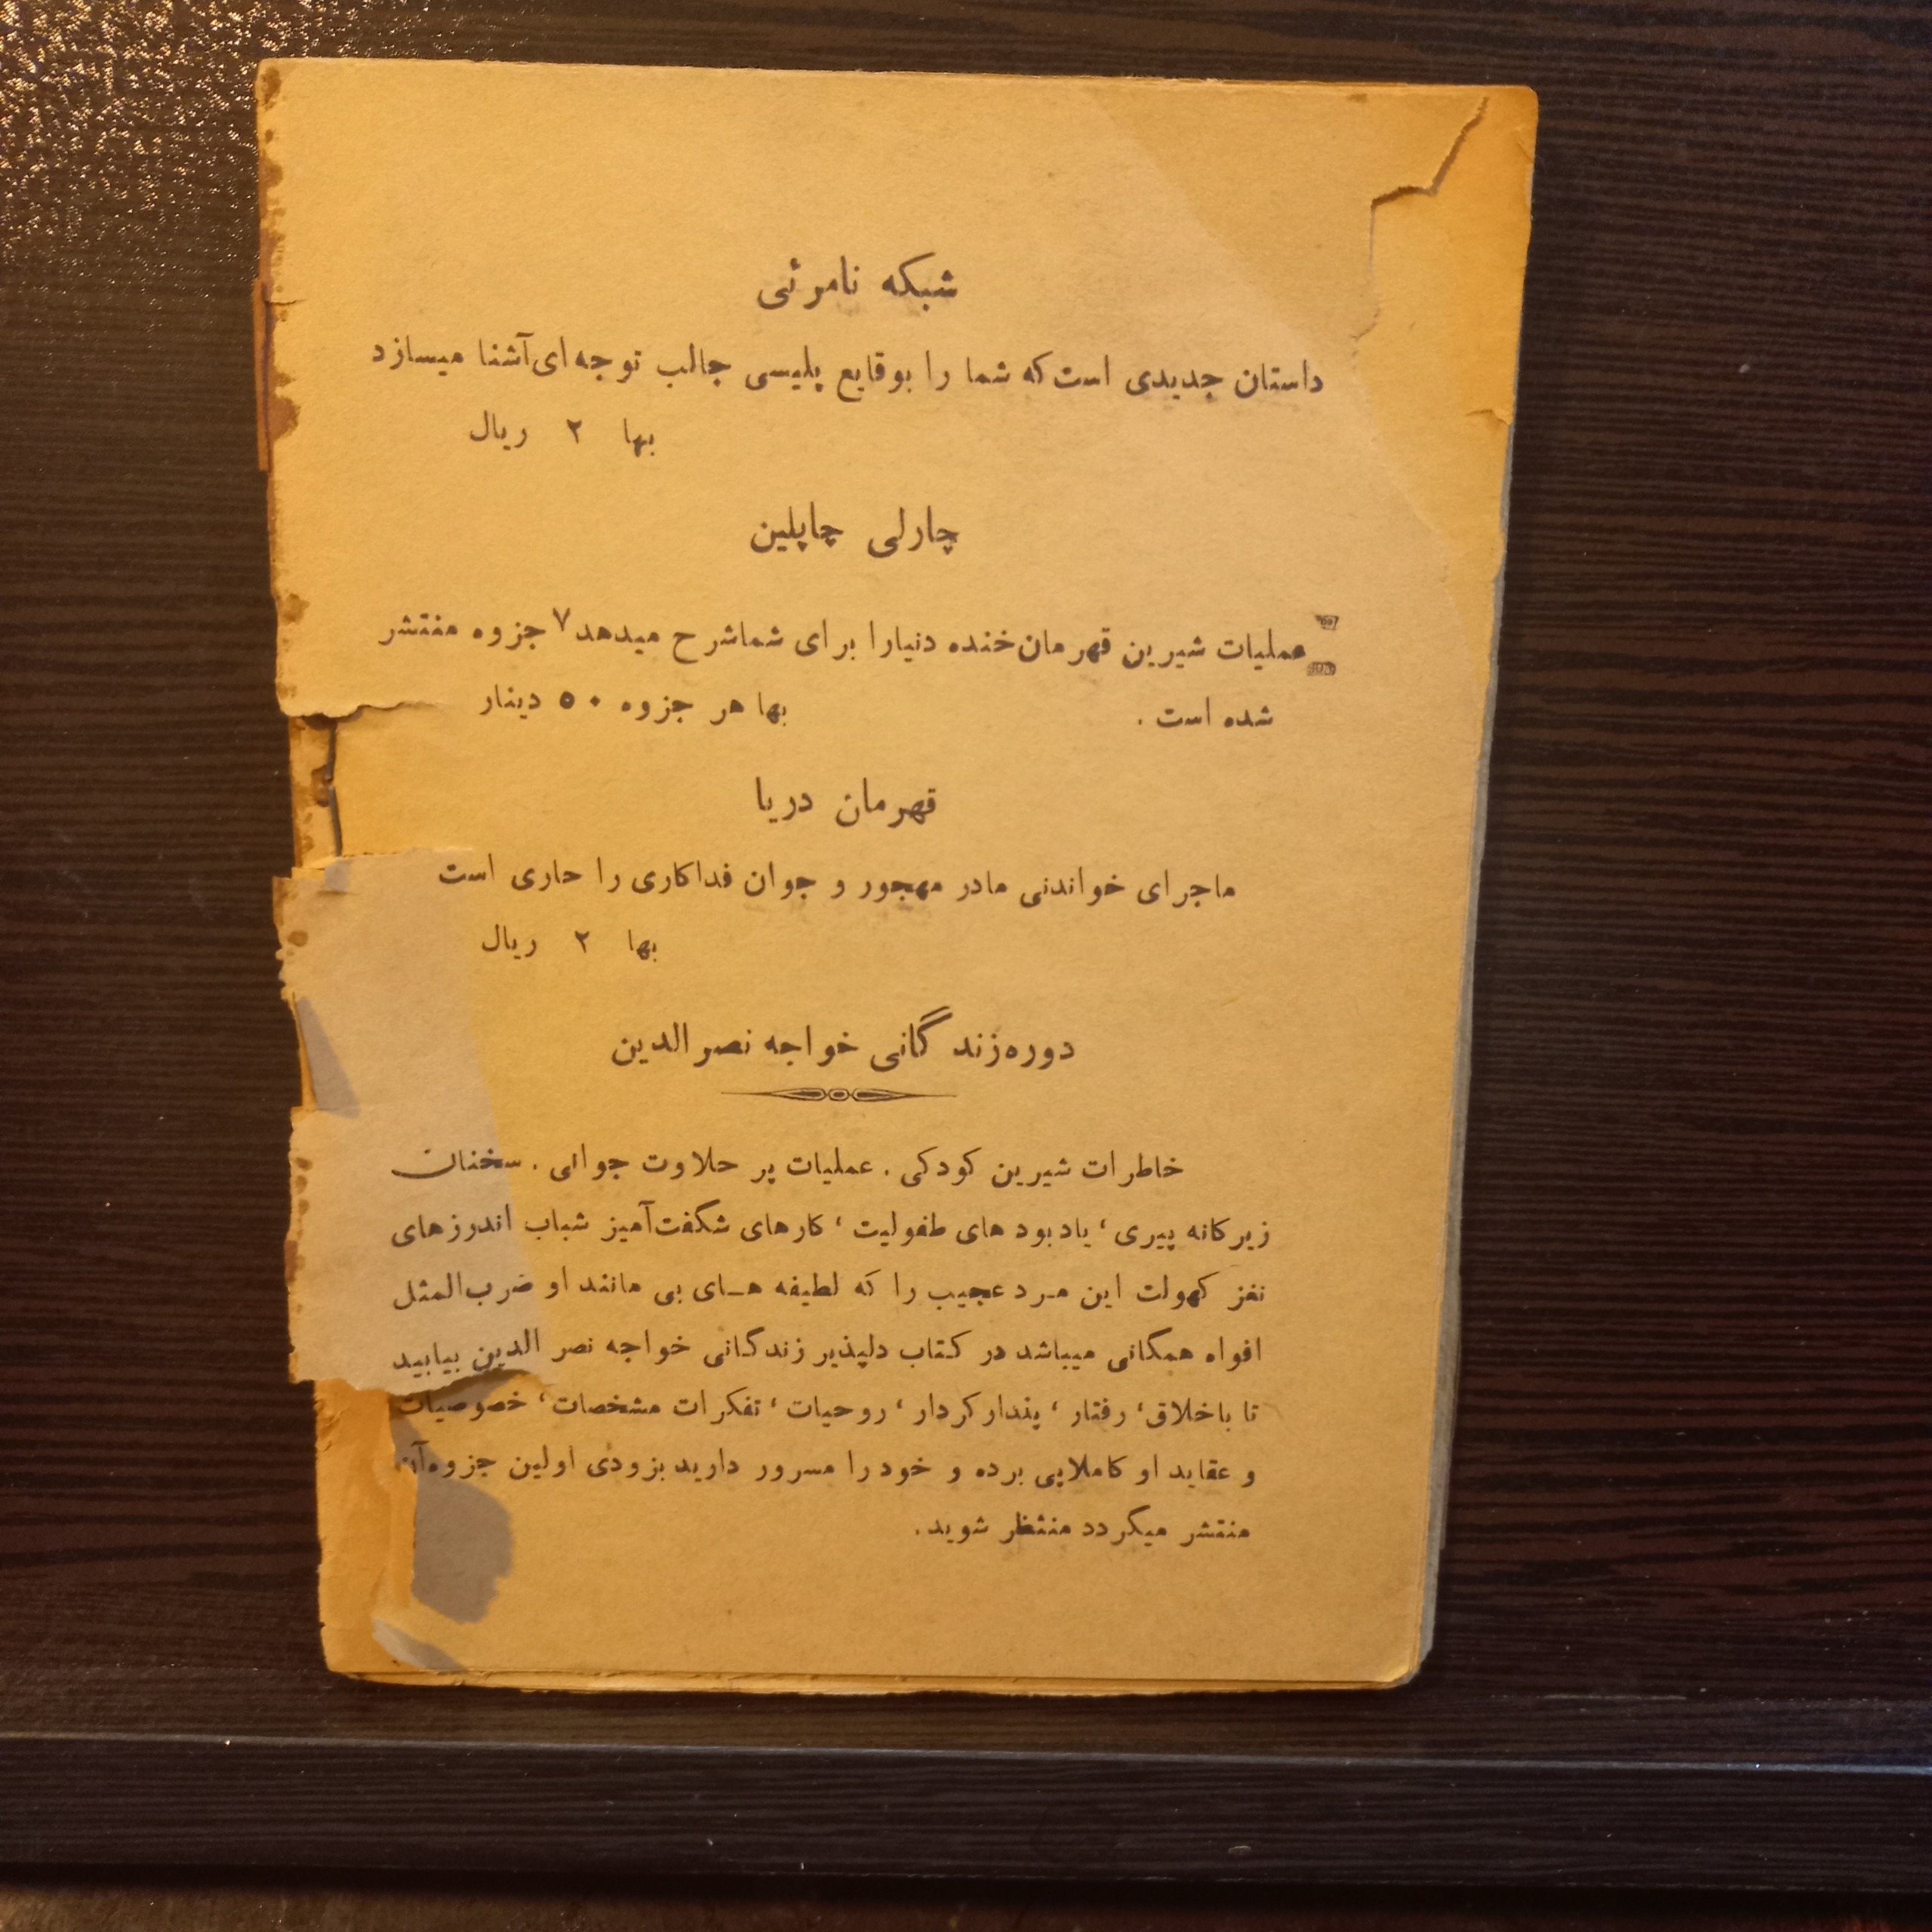 شبکه نامرئی
داستان جدیدی است که شما را بوقایع پلیسی جالب توجه ای آشنا میسازد
بها ۲ ریال
چارلی چاپلین
عملیات شیرین قهرمان خنده دنیارا برای شماشرح میدهد ۷ جزوه منتشر
شده است . بها هر جزوه ۵۰ دینار
قهرمان دریا
ماجرای خواندنی مادر مهجور و جوان فداکاری را حاری است
بها ۲ ریال
دوره زندگانی خواجه نصرالدین
خاطرات شیرین کودکی . عملیات پر حلاوت جوانی . سخنان
زیرکانه پیری ، یادبود های طفولیت ، کارهای شگفت‌آمیز شباب اندرزهای
نغز کهولت این مرد عجیب را که لطیفه های بی مانند او ضرب‌المثل
افواه همگانی میباشد در کتاب دلپذیر زندگانی خواجه نصر الدین بیابید
تا باخلاق ، رفتار ، پندار کردار ، روحیات ، تفکرات مشخصات ، خصوصیات
و عقاید او کاملاپی برده و خود را مسرور دارید بزودی اولین جزوه آن
منتشر میگردد منتظر شوید .